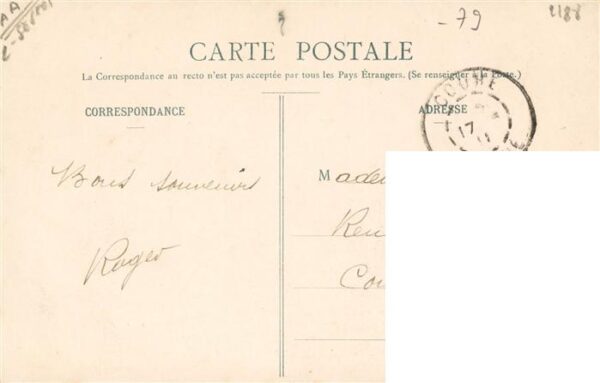 - 79
2188
CARTE POSTALE
La Correspondance au recto n'est pas acceptée par tous les Pays Étrangers. (Se renseigner à la Poste.)
CORRESPONDANCE
ADRESSE
COUHE
17
11
Bons souvenirs
Roger
Madem
Ren
Cou